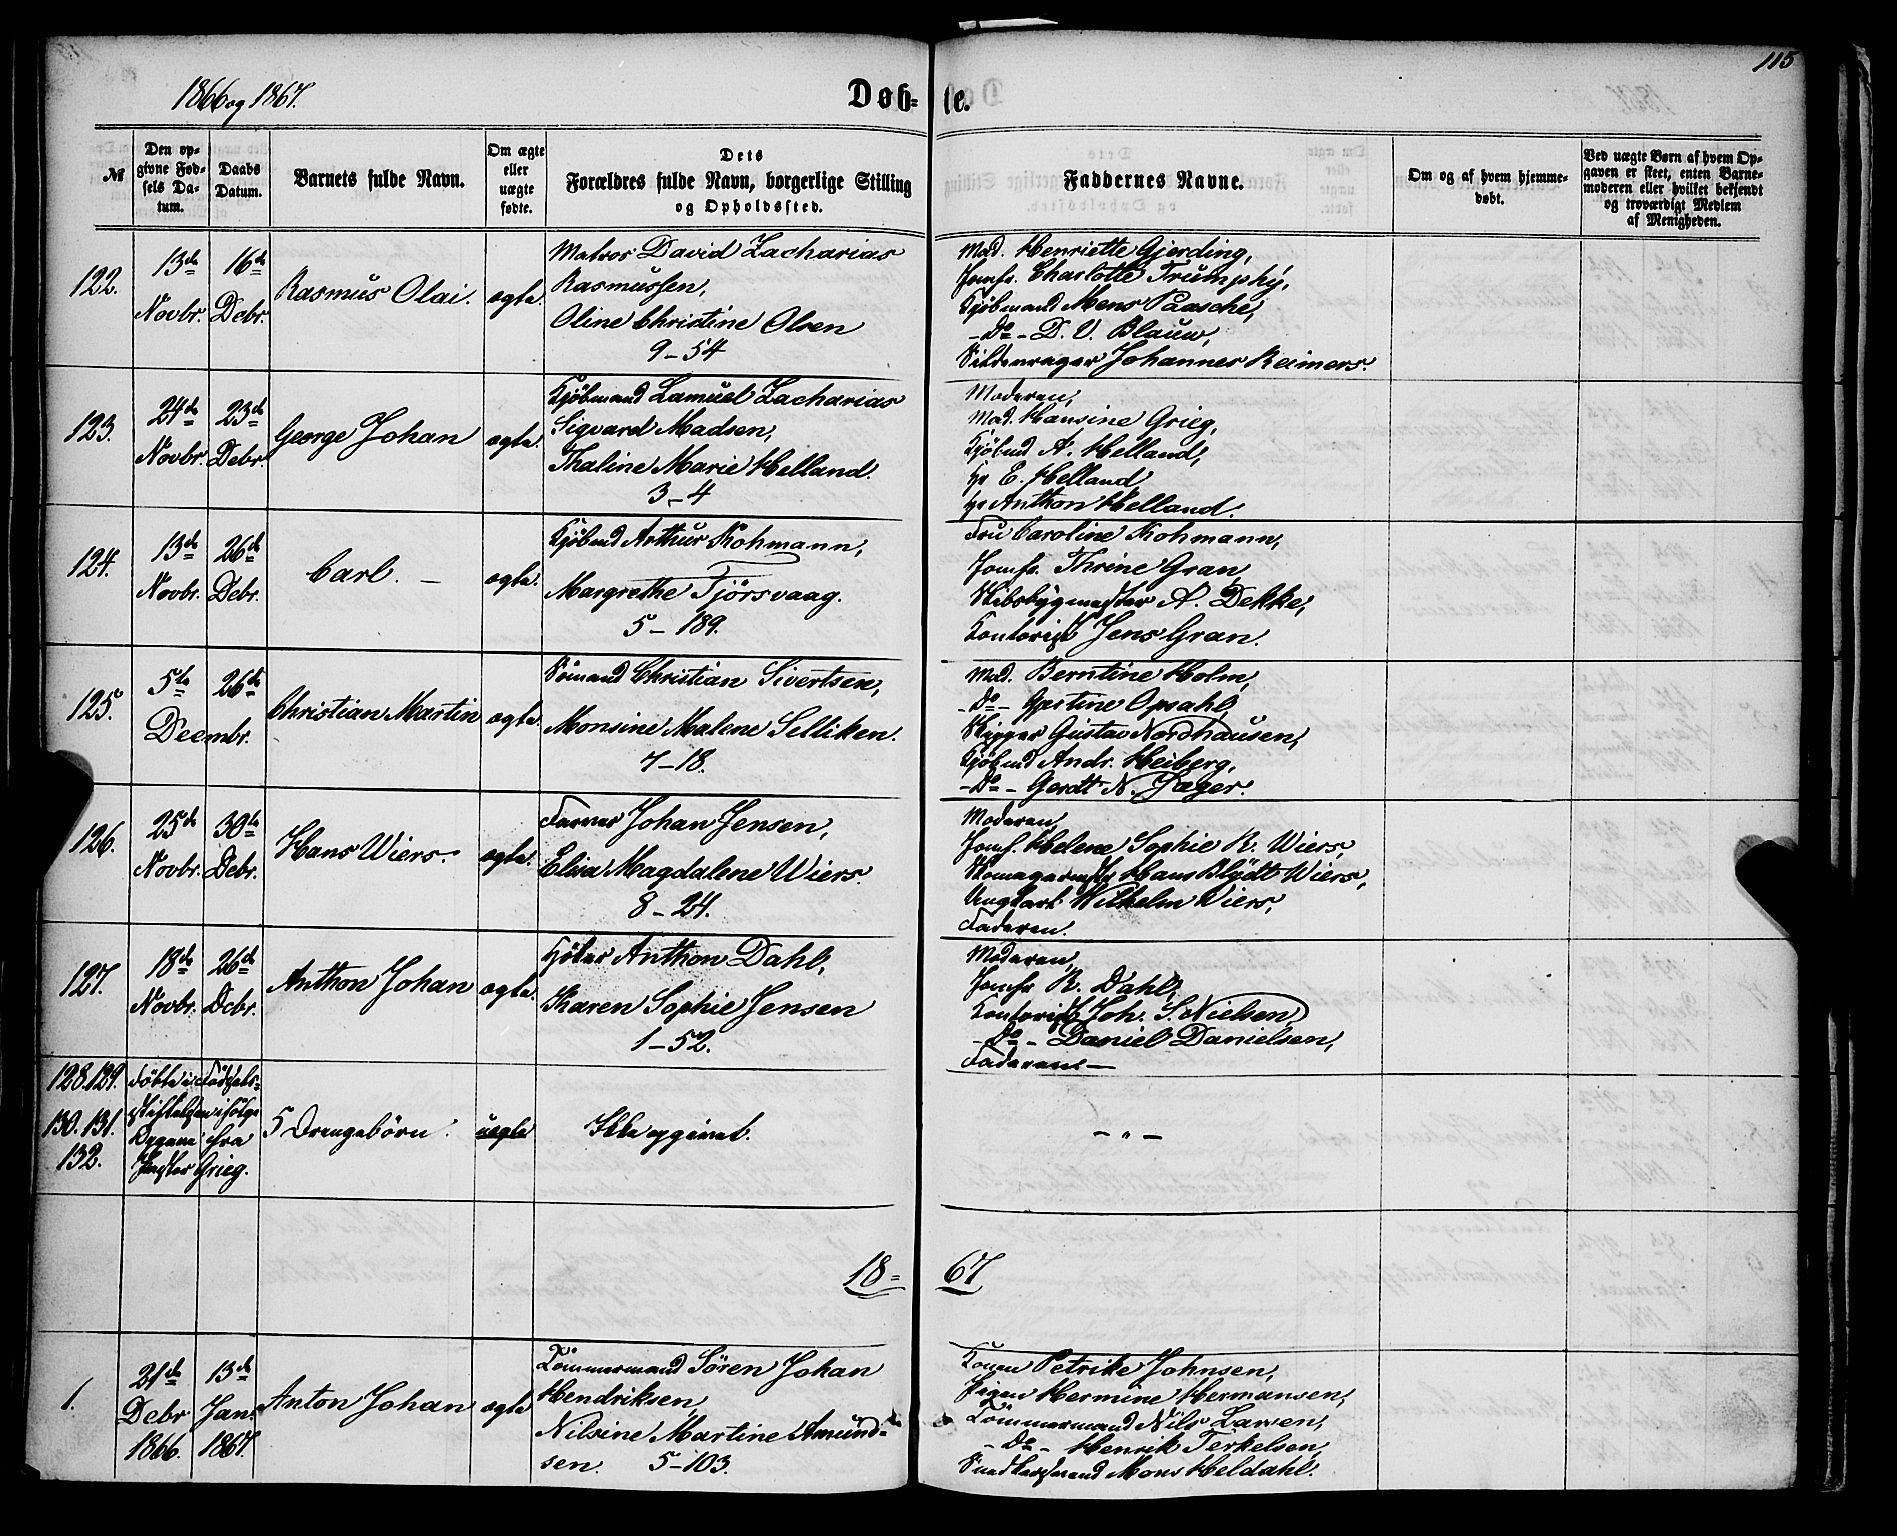 115
1866 og 1867.
Døb-
te.
№
Den op-
givne Fød-
sels Da-
tum.
Daabs
Datum.
Barnets fulde Navn.
Om ægte
eller
uægte
fødte.
Dets
Forældres fulde Navn, borgerlige Stilling
og Opholdssted.
Faddernes Navne.
Om og af hvem hjemme-
døbt.
Ved uægte Børn af hvem Op-
gaven er skeet, enten Barne-
moderen eller hvilket bekjendt
og troværdigt Medlem
af Menigheden.
122.
13de
Novbr.
16de
Dcbr.
Rasmus Olai.
ægte.
Matros David Zacharias
Rasmussen,
Oline Christine Olsen
9-54
Mad. Henriette Gjerding,
Jomfr. Charlotte Trumphy,
Kjöbmand Mens Paasche,
-Do- D. V. Blauw,
Sildevrager Johannes Reimers.
123.
24de
Novbr.
23de
Debr.
George Johan
ægte.
Kjöbmand Lamuel Zacharias
Sigvard Madsen,
Thaline Marie Helland.
3-4
Moderen,
Mad. Hansine Grieg,
Kjöbmd A. Helland,
Hr E. Helland,
Hr Anthon Helland.
124.
13de
Novbr.
26de
Debr.
Carl. -
ægte.
Kjöbmd Arthur Kohmann,
Margrethe Tjörsvaag.
5-189.
Fru Caroline Kohmann,
Jomfr. Thrine Gran,
Skibsbygmester A. Dekke,
Kontorist Jens Gran.
125.
5te
26de
Decmbr.
Christian Martin
ægte.
Sömand Christian Sivertsen,
Monsine Malene Selliken.
7-18.
Mad. Berntine Holm,
-Do- Gjertine Opsahl,
Skipper Gustav Nordhausen,
Kjöbmd Andr. Heiberg,
-Do- Gerdt N. Jager.
126.
25de
Novbr.
30te
Debr.
Hans Wiers.
ægte.
Farver Johan Jensen,
Elisa Magdalene Wiers.
8-24.
Moderen,
Jomf. Helene Sophie R. Wiers,
Skomagermster Hans Blydt Wiers,
Ungkarl Wilhelm Wiers,
Faderen.
127.
18de
Novbr.
26de
Dcbr.
Anthon Johan
ægte.
Kjöber Anthon Dahl,
Karen Sophie Jensen
1-52.
Moderen,
Jomfr R. Dahl,
Kontorist Joh. S. Nielsen,
-Do- Daniel Danielsen,
Faderen -
128. 129.
130. 131.
132.
Födte i Födsels-
stiftelsen ifölge
Opgave fra
Jfr Grieg.
5 Drengebörn.
uægte
Ikke opgivet.
- " -
18=
67
1.
21de
Debr
1866.
13de
Jan.
1867.
Anton Johan
ægte
Tömmermand Sören Johan
Hendriksen,
Nilsine Martine Amund-
sen. 5-103.
Konen Petrike Johnsen,
Pigen Hermine Hermansen,
Tömmermand Nils Larsen,
-Do- Henrik Terkelsen,
Mons Heldahl.